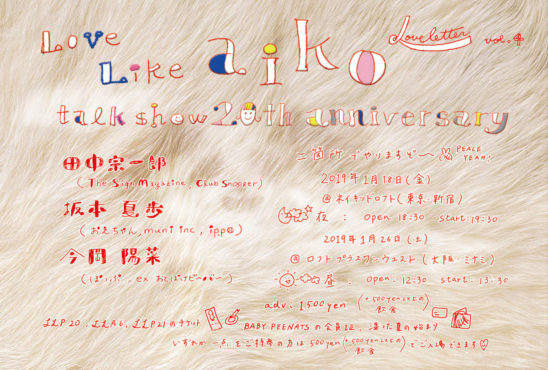 Love Like aiko Love letter vol.4
talk show 20th anniversary
田中宗一郎
(The Sign Magazine, Club Snoozer)
坂本 息歩
muni inc, ippo
今岡 陽菜
二箇所でやりますぞ〜 PEACE YEAH!
2019年1月18日(金)
@ ネイキッドロフト(東京・新宿)
夜: open 18:30 start:19:30
2019年1月26日(土)
@ ロフトプラスワンウエスト(大阪・ミナミ)
昼: open. 12:30 start. 13:30
adv. 1500yen (+500yen以上の飲食)
LLP20, LLA6, LLP21のチケット
BABY PEENATSの会員証、湿った夏の始まり
いずれか一点をご持参の方は500yen(+500yen以上の飲食)でご入場できます♡